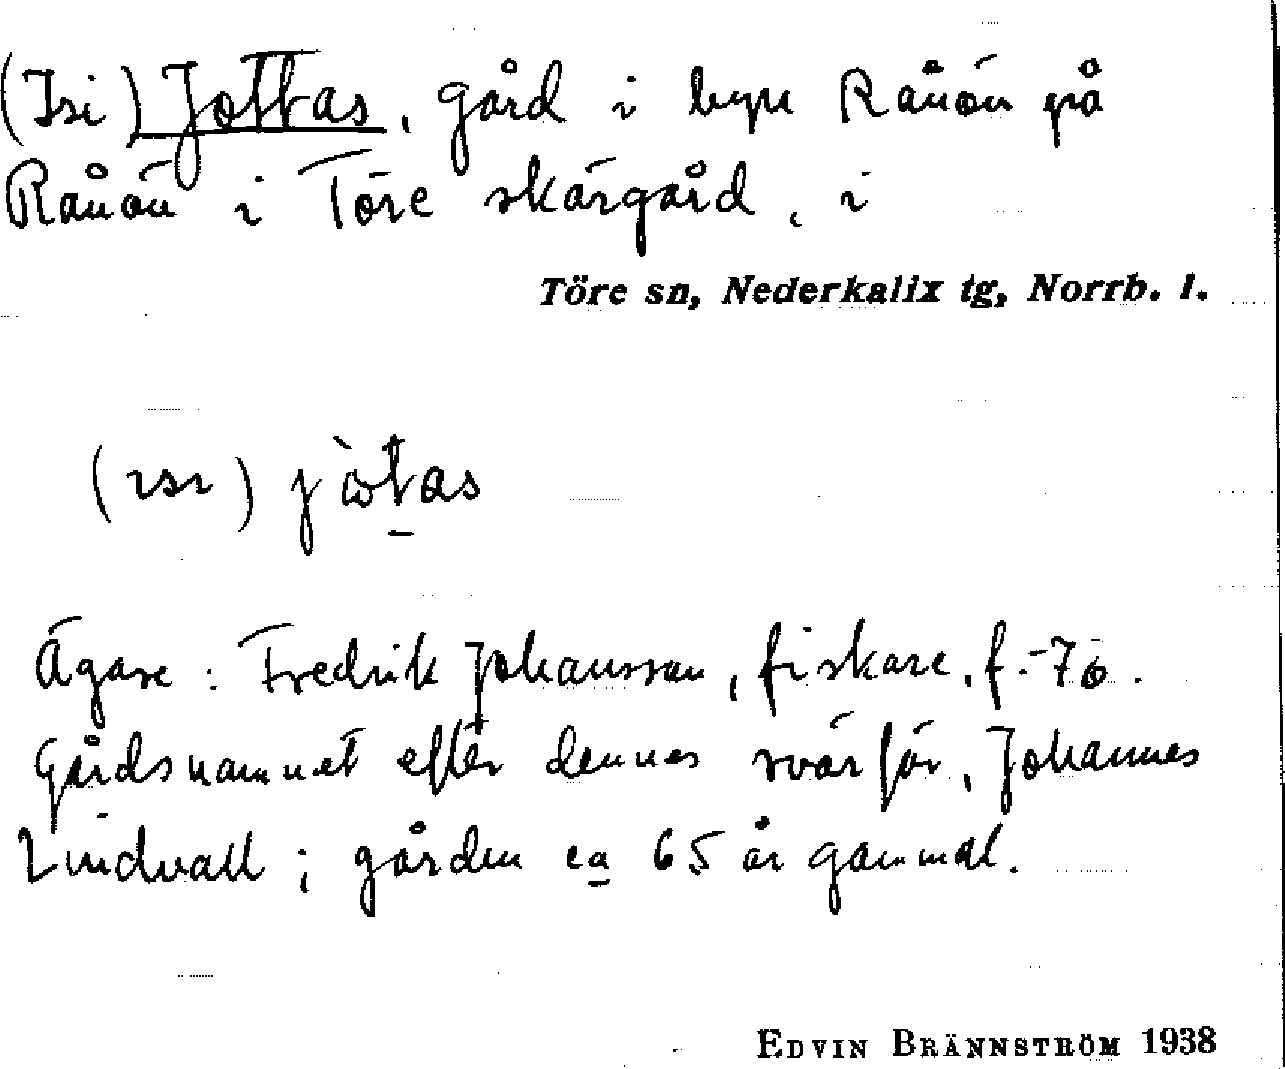 (Isi) Jottas, gård i byn Rånön på
Rånön i Töre skärgård, i
Töre sn, Nederkalix tg, Norrb. l.
(ɪsɪ) jὼtas
Ägare: Fredrik Johansson, fiskare, f. -76.
Gårdsnamnet efter dennes svärfar, Johannes
Lindvall; gården ca 65 år gammal.
EDVIN BRÄNNSTRÖM 1938